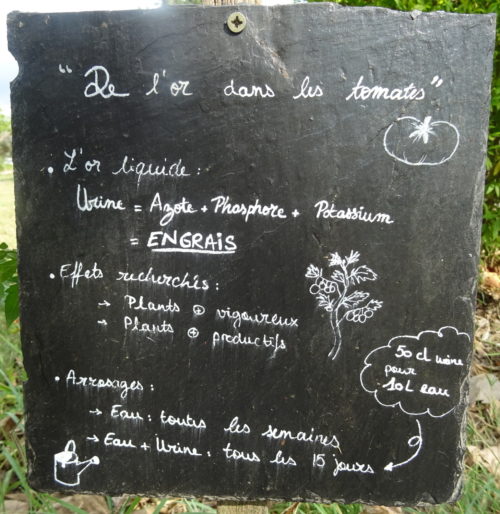 "De l'or dans les tomates"
• L'or liquide :
Urine = Azote + Phosphore + Potassium
= ENGRAIS
• Effets recherchés :
→ Plants ⊕ vigoureux
→ Plants ⊕ productifs
• Arrosages :
→ Eau : toutes les semaines
→ Eau + Urine : tous les 15 jours
50 cl urine
pour
10L eau